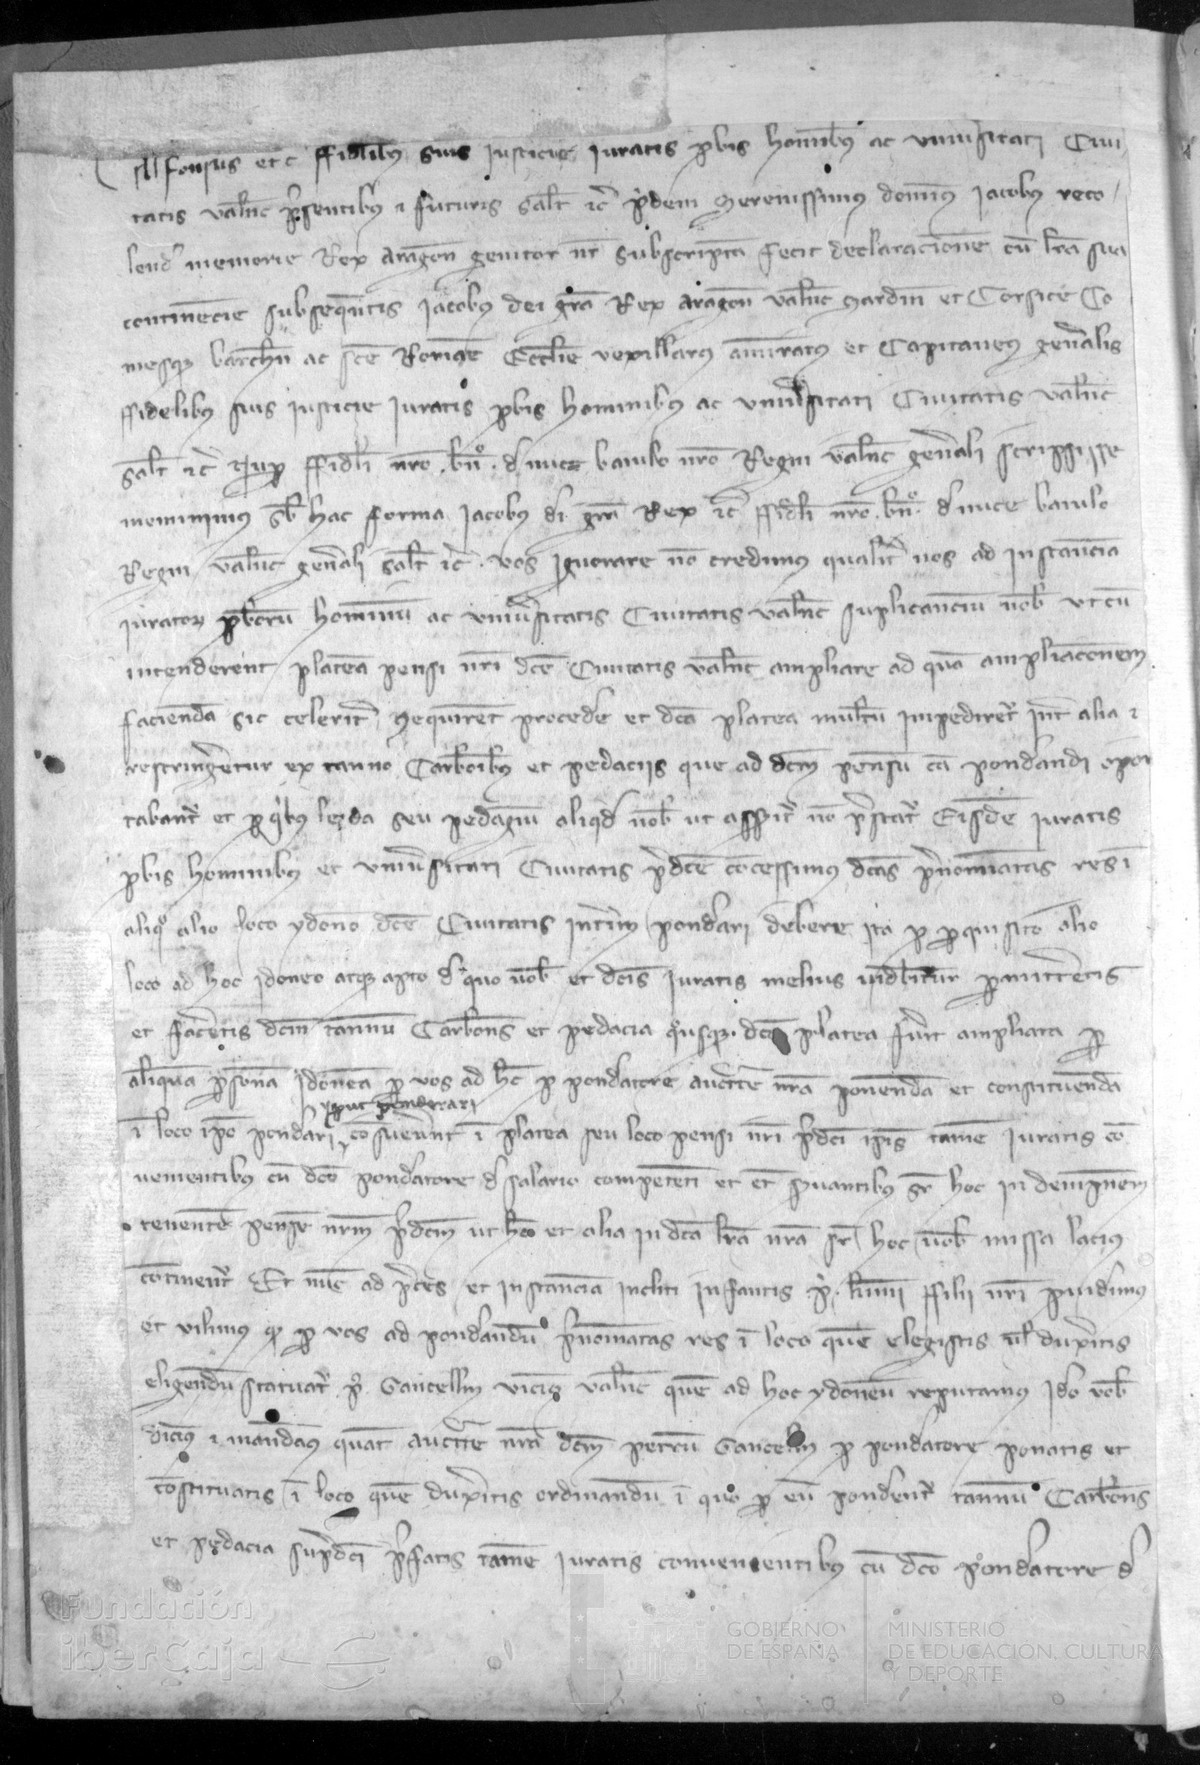 Alfonsus etc ffidelibus suis Justicie Juratis pbis hominibus ac universitati Civi
tatis valnc psentibus & futuris salt etc pdem Serenissimus dominus Jacobus reco
lend memorie Rex aragon genitor nr subscriptam fecit declaracionem cum lra sua
continencie subsequentis Jacobus dei gra Rex aragon valnc Sardin et Corsice Co
mesq barchn ac sce Romane Ecclie vexillarius amiratus et Capitaneus generalis
ffidelibus suis Justicie Juratis pbis hominibus ac universitati Civitatis valnc
salt etc ffideli nro bn de nuce baiulo nro Regni valnc generali scripsisse
meminimus sub hac forma Jacobus di gra Rex etc ffideli nro bn de nuce baiulo
Regni valnc generali salt etc vos ignorare no credimus qualiter nos ad instancia
juratorum pborum hominum ac universitatis Civitatis valnc suplicancium nob ut cum
intenderent plateam pensi nri dce Civitatis valnc ampliare ad quam ampliacionem
facienda sic celeriter nequirent procede et dca platea multum impediretur inter alia &
restringeretur ex tanno Carbonibus et pedaciis que ad dcm pensum ca pondandi opor
tabantur et p quibus lezda seu pedagium aliquid nob ut asseritur no prestatur Eisdem juratis
pbis hominibus et universitati Civitatis pdce concessimus dcas prenominatas res i
aliquo alio loco ydoneo dce Civitatis interim pondari debere ita quod perquisito alio
loco ad hoc idoneo atque apto de quo vob et dcis juratis melius videbitur permittetis
et facietis dcm tannum Carbones et pedacia quousque dca platea fuerit ampliata per
aliquam personam idoneam per vos ad hec pro pondatore auctoritate nra ponendam et constituendam
i loco ipo pondari
prout ponderari
consueverunt i platea seu loco pensi nri pdci ipis tamen juratis con
venientibus cum dco pondatore de salario competenti et etiam servantibus super hoc indempnem
tenente pensum nrm pdcm ut hec et alia in dca lra nra super hoc vob missa lacius
continentur Et nunc ad preces et instancia incliti infantis P. kmi ffilii nri providimus
et volumus quod per vos ad pondandum prenominatas res i loco quem elegistis vel duxeritis
eligendum statuatur P. Gancellm vicinus valnc quem ad hoc ydoneum reputamus Ido vob
dicimus & mandamus quatenus auctoritate nra dcm petrum Gancelm pro pondatore ponatis et
constituatis i loco quem duxeritis ordinandum i quo per eum pondentur tannum Carbones
et pedacia supdci prefatis tamen juratis convenientibus cum dco pondatore de
Fundación
iberCaja
GOBIERNO
DE ESPAÑA
MINISTERIO
DE EDUCACIÓN, CULTURA
Y DEPORTE